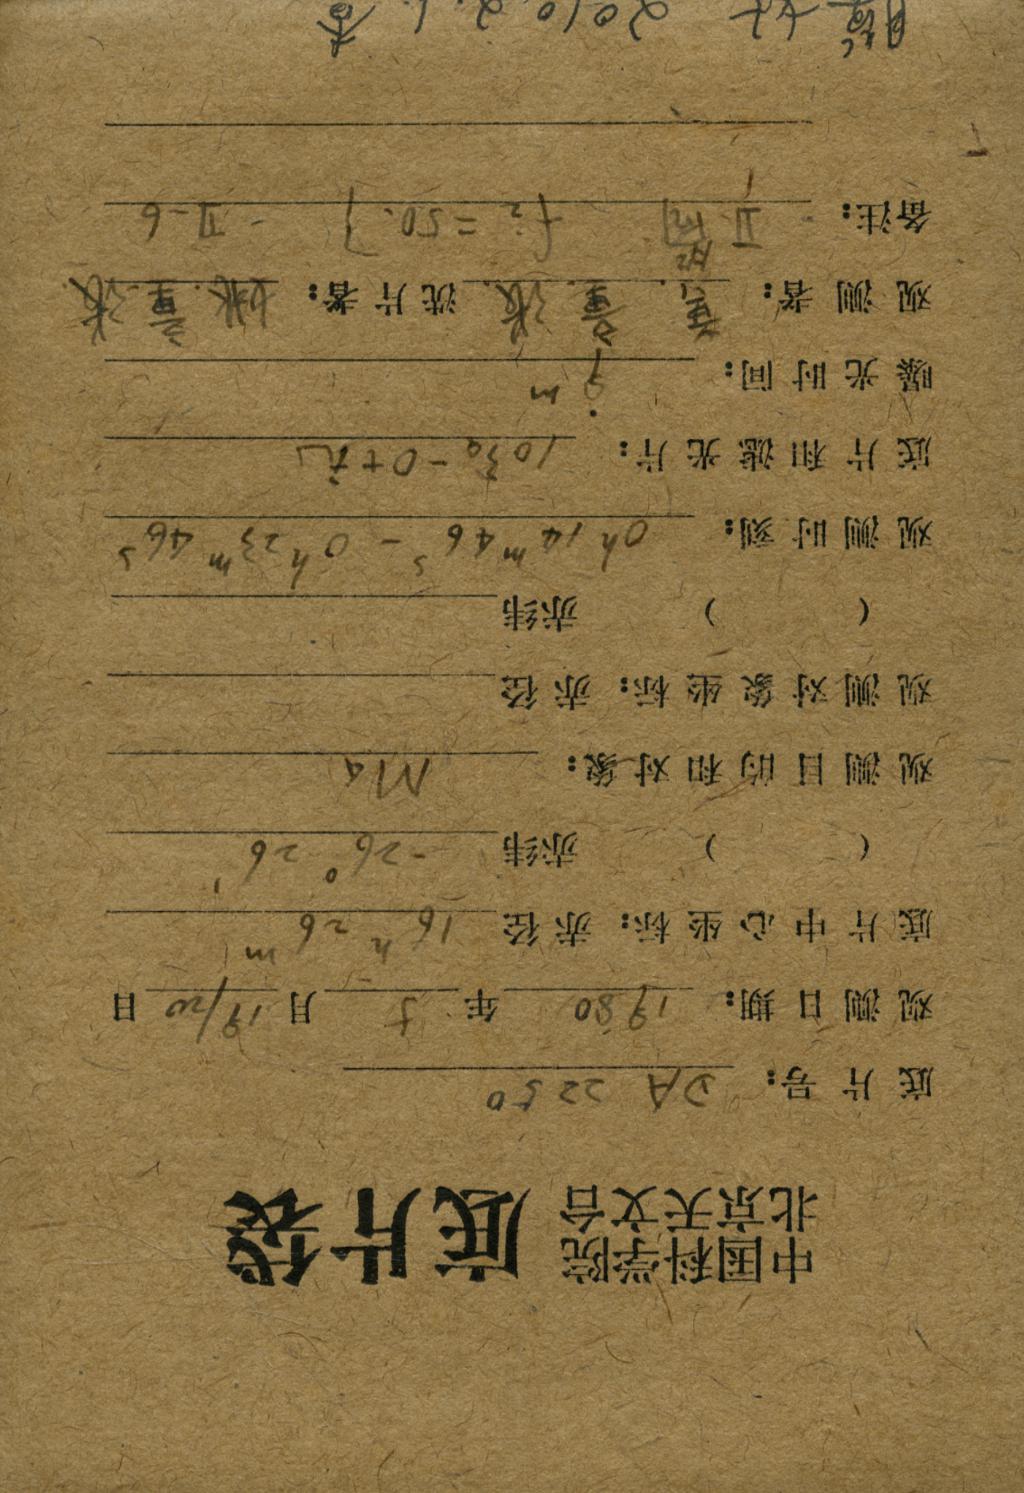 中国科学院
北京天文台 底片袋
底片号: DA 2250
观测日期: 1980 年 5 月 19/20 日
底片中心坐标: 赤径 16h 26m
( ) 赤纬 -26° 26'
观测目的和对象: Ma
观测对象坐标: 赤径
( ) 赤纬
观测时刻: 0h 14m 46s - 0h 23m 46s
底片和滤光片: 103a-O+无
曝光时间: 9m
观测者: 童. 张. 洗片者: 姚. 童. 张.
备注: f2=50.7 - II-6
2010.2.1 查